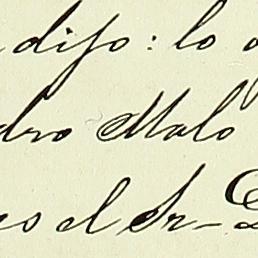 dijo: lo
dro Malo
es el Sr-